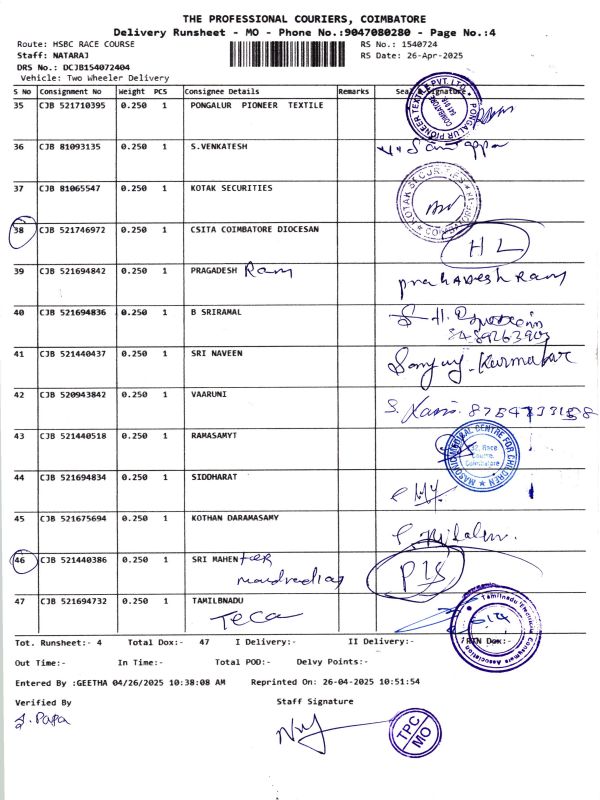 THE PROFESSIONAL COURIERS, COIMBATORE
Delivery Runsheet - MO - Phone No.:9047080280 - Page No.:4
Route: HSBC RACE COURSE RS No.: 1540724
Staff: NATARAJ RS Date: 26-Apr-2025
DRS No.: DCJB154072404
Vehicle: Two Wheeler Delivery
S No Consignment No Weight PCS Consignee Details Remarks Seal Signature
35 CJB 521710395 0.250 1 PONGALUR PIONEER TEXTILE
36 CJB 81093135 0.250 1 S.VENKATESH
37 CJB 81065547 0.250 1 KOTAK SECURITIES
38 CJB 521746972 0.250 1 CSITA COIMBATORE DIOCESAN HL
39 CJB 521694842 0.250 1 PRAGADESH Ram prahadesh Ram
40 CJB 521694836 0.250 1 B SRIRAMAL
41 CJB 521440437 0.250 1 SRI NAVEEN Sanjuy. Karmakar
42 CJB 520943842 0.250 1 VAARUNI
43 CJB 521440518 0.250 1 RAMASAMYT
MASONIC MEDICAL CENTRE FOR CHILDREN
232, Race
Course,
Coimbatore
44 CJB 521694834 0.250 1 SIDDHARAT
45 CJB 521675694 0.250 1 KOTHAN DARAMASAMY
46 CJB 521440386 0.250 1 SRI MAHEN
47 CJB 521694732 0.250 1 TAMILBNADU
Teca
Tamilnadu Electricity Consumers Association
Tot. Runsheet:- 4 Total Dox:- 47 I Delivery:- II Delivery:- RTN Dox:-
Out Time:- In Time:- Total POD:- Delvy Points:-
Entered By :GEETHA 04/26/2025 10:38:08 AM Reprinted On: 26-04-2025 10:51:54
Verified By Staff Signature
J. Papa
TPC
MO